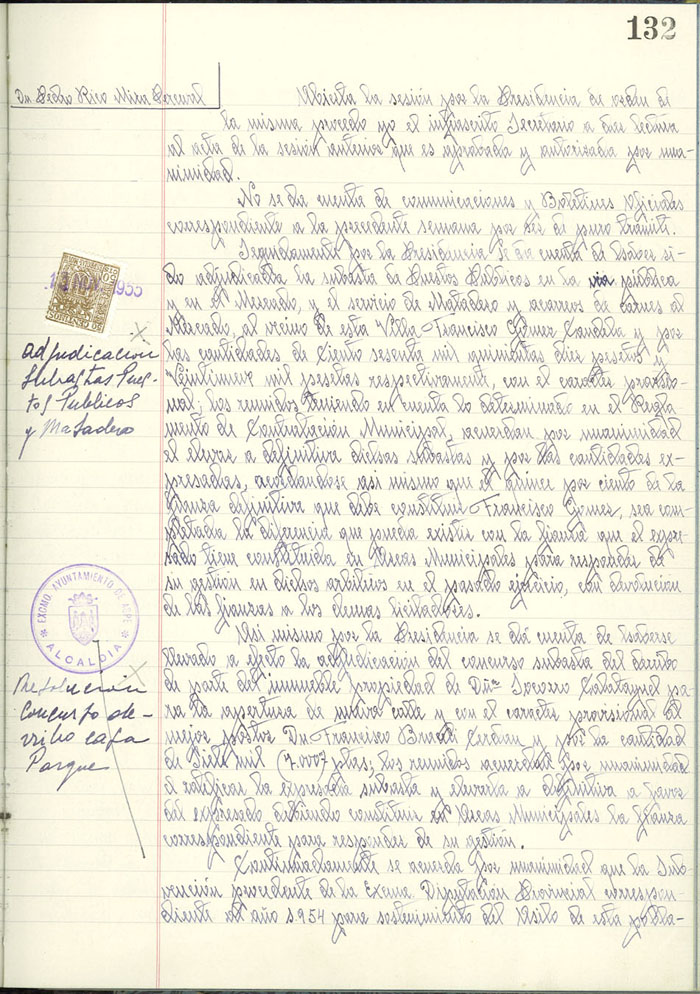 132
Dn Pedro Rico Mira Perceval
Abierta la sesión por la Presidencia de orden de
la misma procedo yo el infrascrito Secretario a dar lectura
al acta de la sesión anterior que es aprobada y autorizada por una-
nimidad.
No se da cuenta de comunicaciones y Boletines Oficiales
correspondiente a la precedente semana por ser de puro tramite.
Seguidamente por la Presidencia se da cuenta de haber si-
do adjudicada la subasta de Puestos Publicos en la via pública
y en el Mercado, y el servicio de Matadero y acarreo de carnes al
Mercado, al vecino de esta Villa Francisco Gómez Candela y por
las cantidades de Ciento sesenta mil quinientas diez pesetas y
Veintinueve mil pesetas respectivamente, con el caracter provisio-
nal; los reunidos teniendo en cuenta lo determinado en el Regla-
mento de Contratación Municipal, acuerdan por unanimidad
el elevar a definitiva dichas subastas y por las cantidades ex-
presadas, acordandose asi mismo que el quince por ciento de la
fianza definitiva que debe constituir Francisco Gomez, sea com-
pletada la diferencia que pueda existir con la fianza que el expre-
sado tiene constituida en Arcas Municipales para responder de
su gestión en dichos arbitrios en el pasado ejercicio, con devolucion
de las fianzas a los demas licitadores.
Asi mismo por la Presidencia se dá cuenta de haberse
llevado a efecto la adjudicación del concurso subasta del derribo
de parte del inmueble propiedad de Dña Socorro Calatayud pa-
ra la apertura de nueva calle y con el caracter provisional al
mejor postor Dn. Francisco Cerdan y por la cantidad
de Siete mil (7.000) ptas; los reunidos acuerdan por unanimidad
el ratificar la expresada subasta y elevarla a definitiva a favor
del expresado debiendo constituir en Arcas Municipales la fianza
correspondiente para responder de su gestión.
Continuadamente se acuerda por unanimidad que la Sub-
vención procedente de la Excma Diputación Provincial correspon-
diente al año 1.954 para sostenimiento del Asilo de esta pobla-
NOV. 1955
adjudicacion
subastas Pues-
tos Publicos
y Matadero
EXCMO. AYUNTAMIENTO DE ASPE
ALCALDIA
Resolucion
Concurso de-
rribo casa
Parque